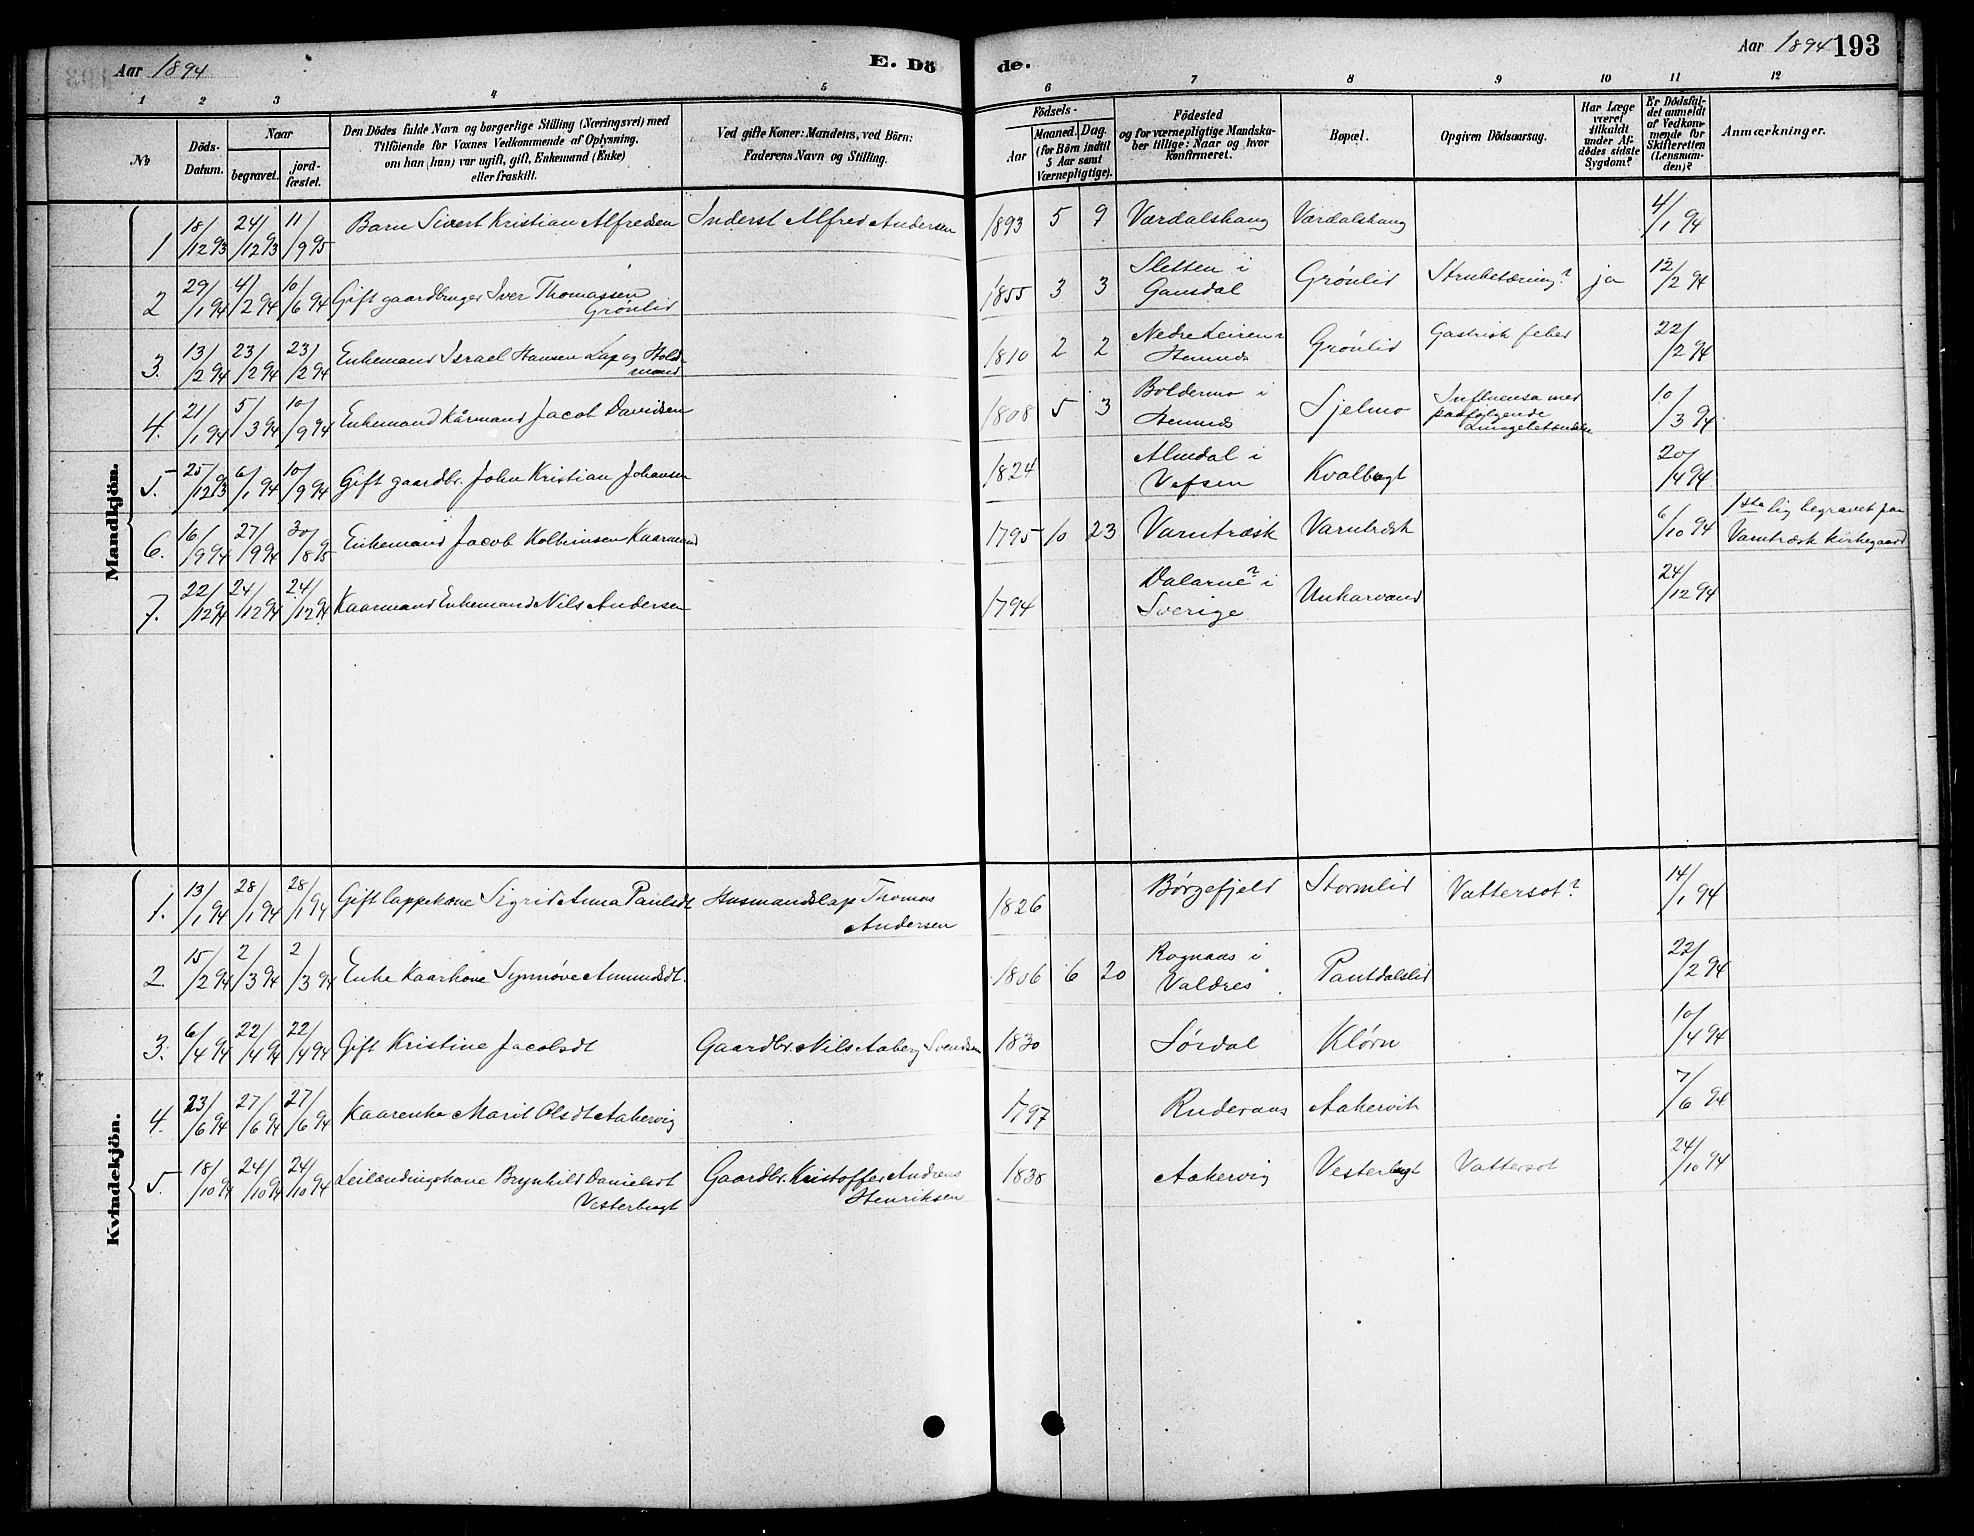 Aar 1894
E. Dö
de.
Aar 1894 193
1 2 3 4 5 6 7 8 9 10 11 12
No
Döds-
Datum.
Naar
begravet.
jord-
fæstet.
Den Dödes fulde Navn og borgerlige Stilling (Næringsvei) med
Tilföiende for Voxnes Vedkommende af Oplysning,
om han (hun) var ugift, gift, Enkemand (Enke)
eller fraskilt.
Ved gifte Koner: Mandens, ved Börn:
Faderens Navn og Stilling.
Födsels-
Aar
Maaned. Dag.
(for Börn indtil
5 Aar samt
Værnepligtige).
Födested
og for værnepligtige Mandska-
ber tillige: Naar og hvor
konfirmeret.
Bopæl.
Opgiven Dödsaarsag.
Har Læge
været
tilkaldt
under Af-
dödes sidste
Sygdom?
Er Dödsfal-
det anmeldt
af Vedkom-
mende for
Skifteretten
(Lensman-
den)?
Anmærkninger.
Mandkjön.
1 18/12 93 24/12 93 11/9 95 Barn Sivert Kristian Alfredsen Inderst Alfred Andersen 1893 5 9 Værdalshaug Værdalshaug 4/1 94
2 29/1 94 4/2 94 10/6 94 Gift gaardbruger Iver Thomassen
Grönlid
1855 3 3 Sletten i
Gausdal
Grönlid Strubetæring? ja 12/2 94
3. 13/2 94 23/2 94 23/2 94 Enkemand Israel Hansen Lap og Hold-
mand
1810 2 2 Nedre Leiren?
Hemnes
Grönlid Gastrisk feber 22/2 94
4. 21/1 94 5/3 94 10/9 94 Enkemand Kårmand Jacob Davidsen 1808 5 3 Boldermo i
Hemnes
Sjelmo Influensa med
paafølgende
Lungebetændelse
10/3 94
5. 25/12 93 6/1 94 10/9 94 Gift gaardbr. John Kristian Johansen 1824 Almdal i
Vefsen
Kvalbugt 20/4 94
6. 16/9 94 27/9 94 30/8 95 Enkemand Jacob Kolbeinsen Kaarmand 1795 10 23 Varntræsk Varntræsk 6/10 94 1ste lig begravet paa
Varntræsk kirkegaard
7. 22/12 94 24/12 94 24/12 94 Kaarmand Enkemand Nils Andersen 1794 Dalarne? i
Sverige
Unkarvand 24/12 94
Kvindekjön.
1. 13/1 94 28/1 94 28/1 94 Gift lappekone Sigrid Anna Paulsdt Husmandslap Thomas
Andersen
1826 Börgefjeld Stormlid Vattersot? 14/1 94
2. 15/2 94 2/3 94 2/3 94 Enke Kaarkone Synnöve Amundsdt. 1806 6 20 Rognaas i
Valdres
Pantdalslid 22/2 94
3. 6/4 94 22/4 94 22/4 94 Gift Kristine Jacobsdt Gaardbr. Nils Aaberg Svendsen 1830 Sördal Klörn 10/4 94
4. 23/6 94 27/6 94 27/6 94 Kaarenke Marit Olsdt Aakervig 1797 Ruderaas Aakervik 7/6 94
5. 18/10 94 24/10 94 24/10 94 Leilændingskone Brynhild Danielsdt
Vesterbugt
Gaardbr. Kristoffer Andreas
Henriksen
1838 Aakervig Vesterbugt Vattersot 24/10 94